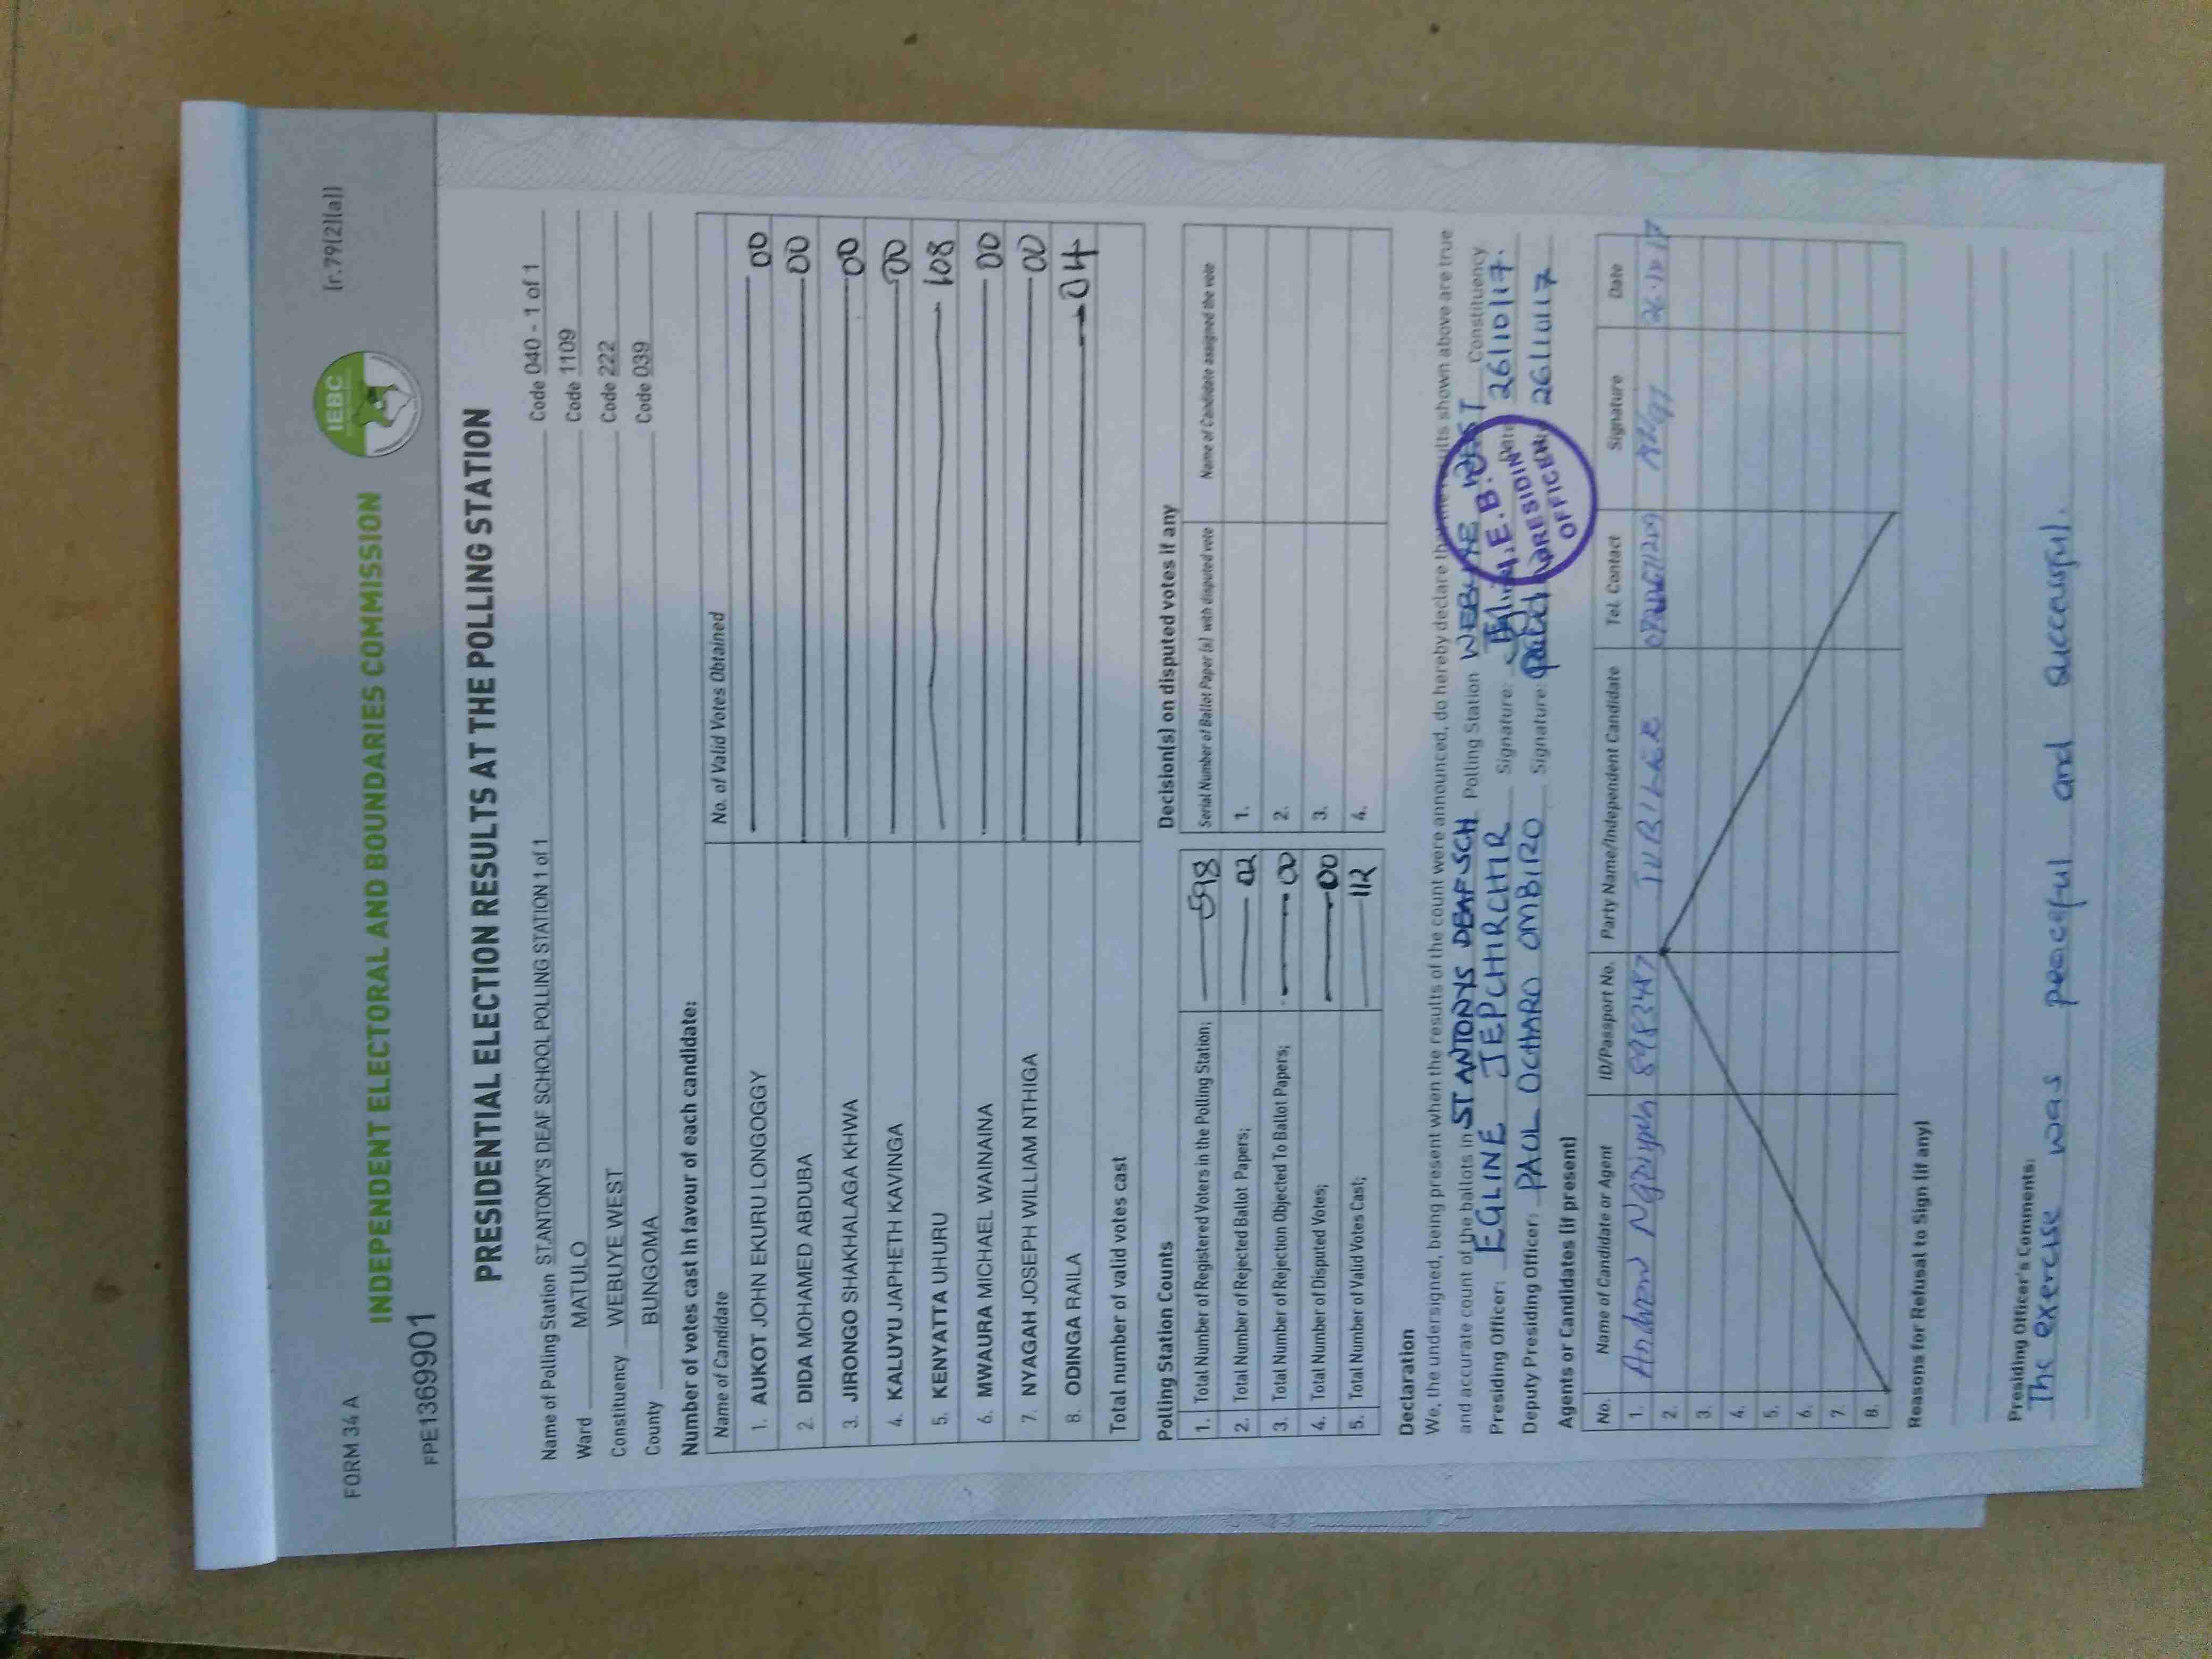 FORM 34 A
(r.79(2)(a))
IEBC
INDEPENDENT ELECTORAL AND BOUNDARIES COMMISSION
FPE1369901
PRESIDENTIAL ELECTION RESULTS AT THE POLLING STATION
Name of Polling Station ST.ANTONY'S DEAF SCHOOL POLLING STATION 1 of 1 Code 040 - 1 of 1
Ward MATULO Code 1109
Constituency WEBUYE WEST Code 222
County BUNGOMA Code 039
Number of votes cast in favour of each candidate:
Name of Candidate No. of Valid Votes Obtained
1. AUKOT JOHN EKURU LONGOGGY 00
2. DIDA MOHAMED ABDUBA 00
3. JIRONGO SHAKHALAGA KHWA 00
4. KALUYU JAPHETH KAVINGA 00
5. KENYATTA UHURU 108
6. MWAURA MICHAEL WAINAINA 00
7. NYAGAH JOSEPH WILLIAM NTHIGA 00
8. ODINGA RAILA 04
Total number of valid votes cast
Polling Station Counts
1. Total Number of Registered Voters in the Polling Station; 598
2. Total Number of Rejected Ballot Papers; 02
3. Total Number of Rejection Objected To Ballot Papers; 00
4. Total Number of Disputed Votes; 00
5. Total Number of Valid Votes Cast; 112
Decision(s) on disputed votes if any
Serial Number of Ballot Paper (s) with disputed vote Name of Candidate assigned the vote
1.
2.
3.
4.
Declaration
We, the undersigned, being present when the results of the count were announced, do hereby declare that the results shown above are true
and accurate count of the ballots in ST ANTONYS DEAF SCH Polling Station WEBUYE WEST Constituency
Presiding Officer: EGLINE JEPCHIRCHIR Signature: Date 26/10/17.
Deputy Presiding Officer: PAUL OCHARO OMBIRO Signature: 26/10/17
I.E.B.C
PRESIDING
OFFICER
Agents or Candidates (if present)
No. Name of Candidate or Agent ID/Passport No. Party Name/Independent Candidate Tel. Contact Signature Date
1. Andrew JUBILEE 26.10.17
2.
3.
4.
5.
6.
7.
8.
Reasons for Refusal to Sign (if any)
Presiding Officer's Comments:
The exercise was peaceful and successful.